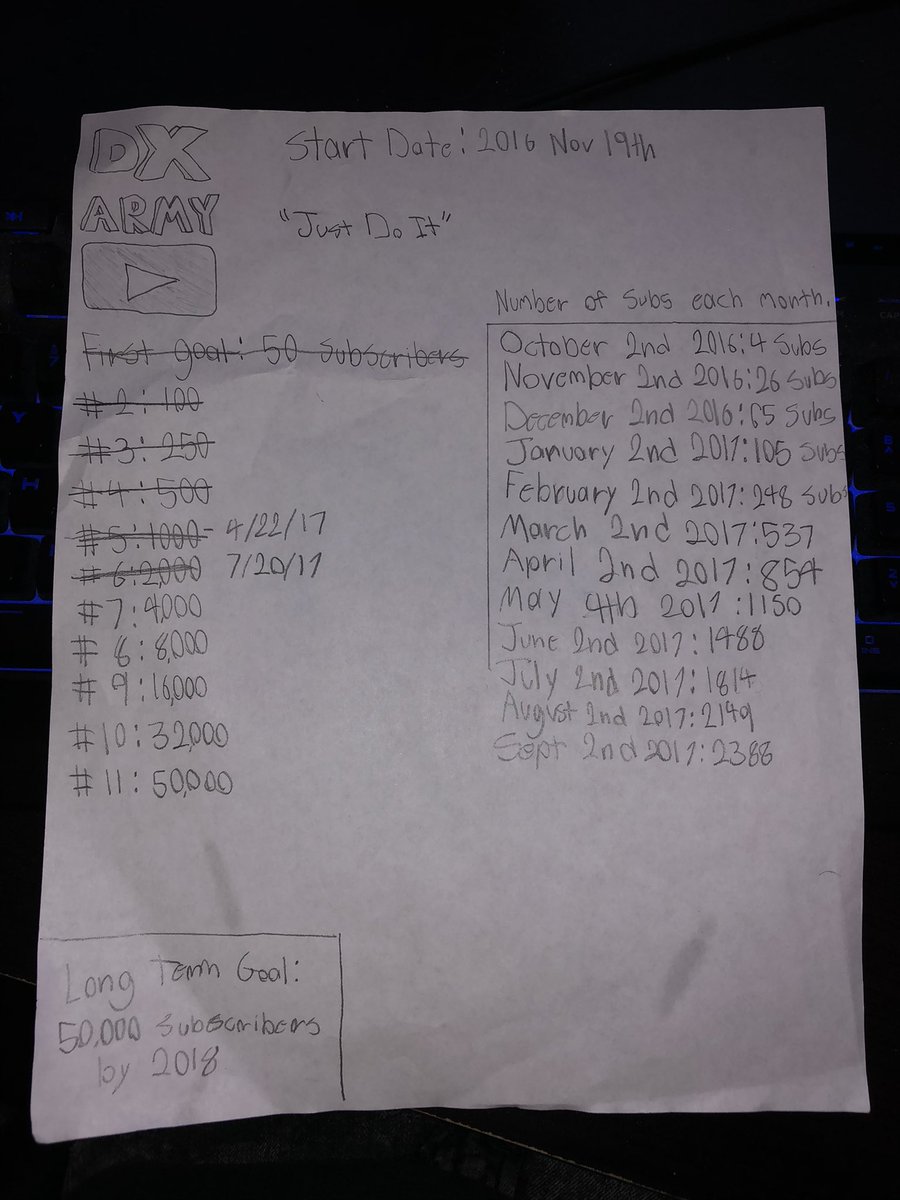 DX
ARMY
Start Date: 2016 Nov 19th
"Just Do It"
First goal: 50 Subscribers
# 2 : 100
# 3 : 250
# 4 : 500
# 5 : 1000 - 4/22/17
# 6 : 2,000 7/20/17
# 7 : 4,000
# 8 : 8,000
# 9 : 16,000
# 10 : 32,000
# 11 : 50,000
Number of Subs each month.
October 2nd 2016: 4 Subs
November 2nd 2016: 26 Subs
December 2nd 2016: 65 Subs
January 2nd 2017: 105 Subs
February 2nd 2017: 248 Subs
March 2nd 2017: 537
April 2nd 2017: 854
May 4th 2017: 1150
June 2nd 2017: 1488
July 2nd 2017: 1814
August 2nd 2017: 2149
Sept 2nd 2017: 2388
Long Term Goal:
50,000 Subscribers
by 2018